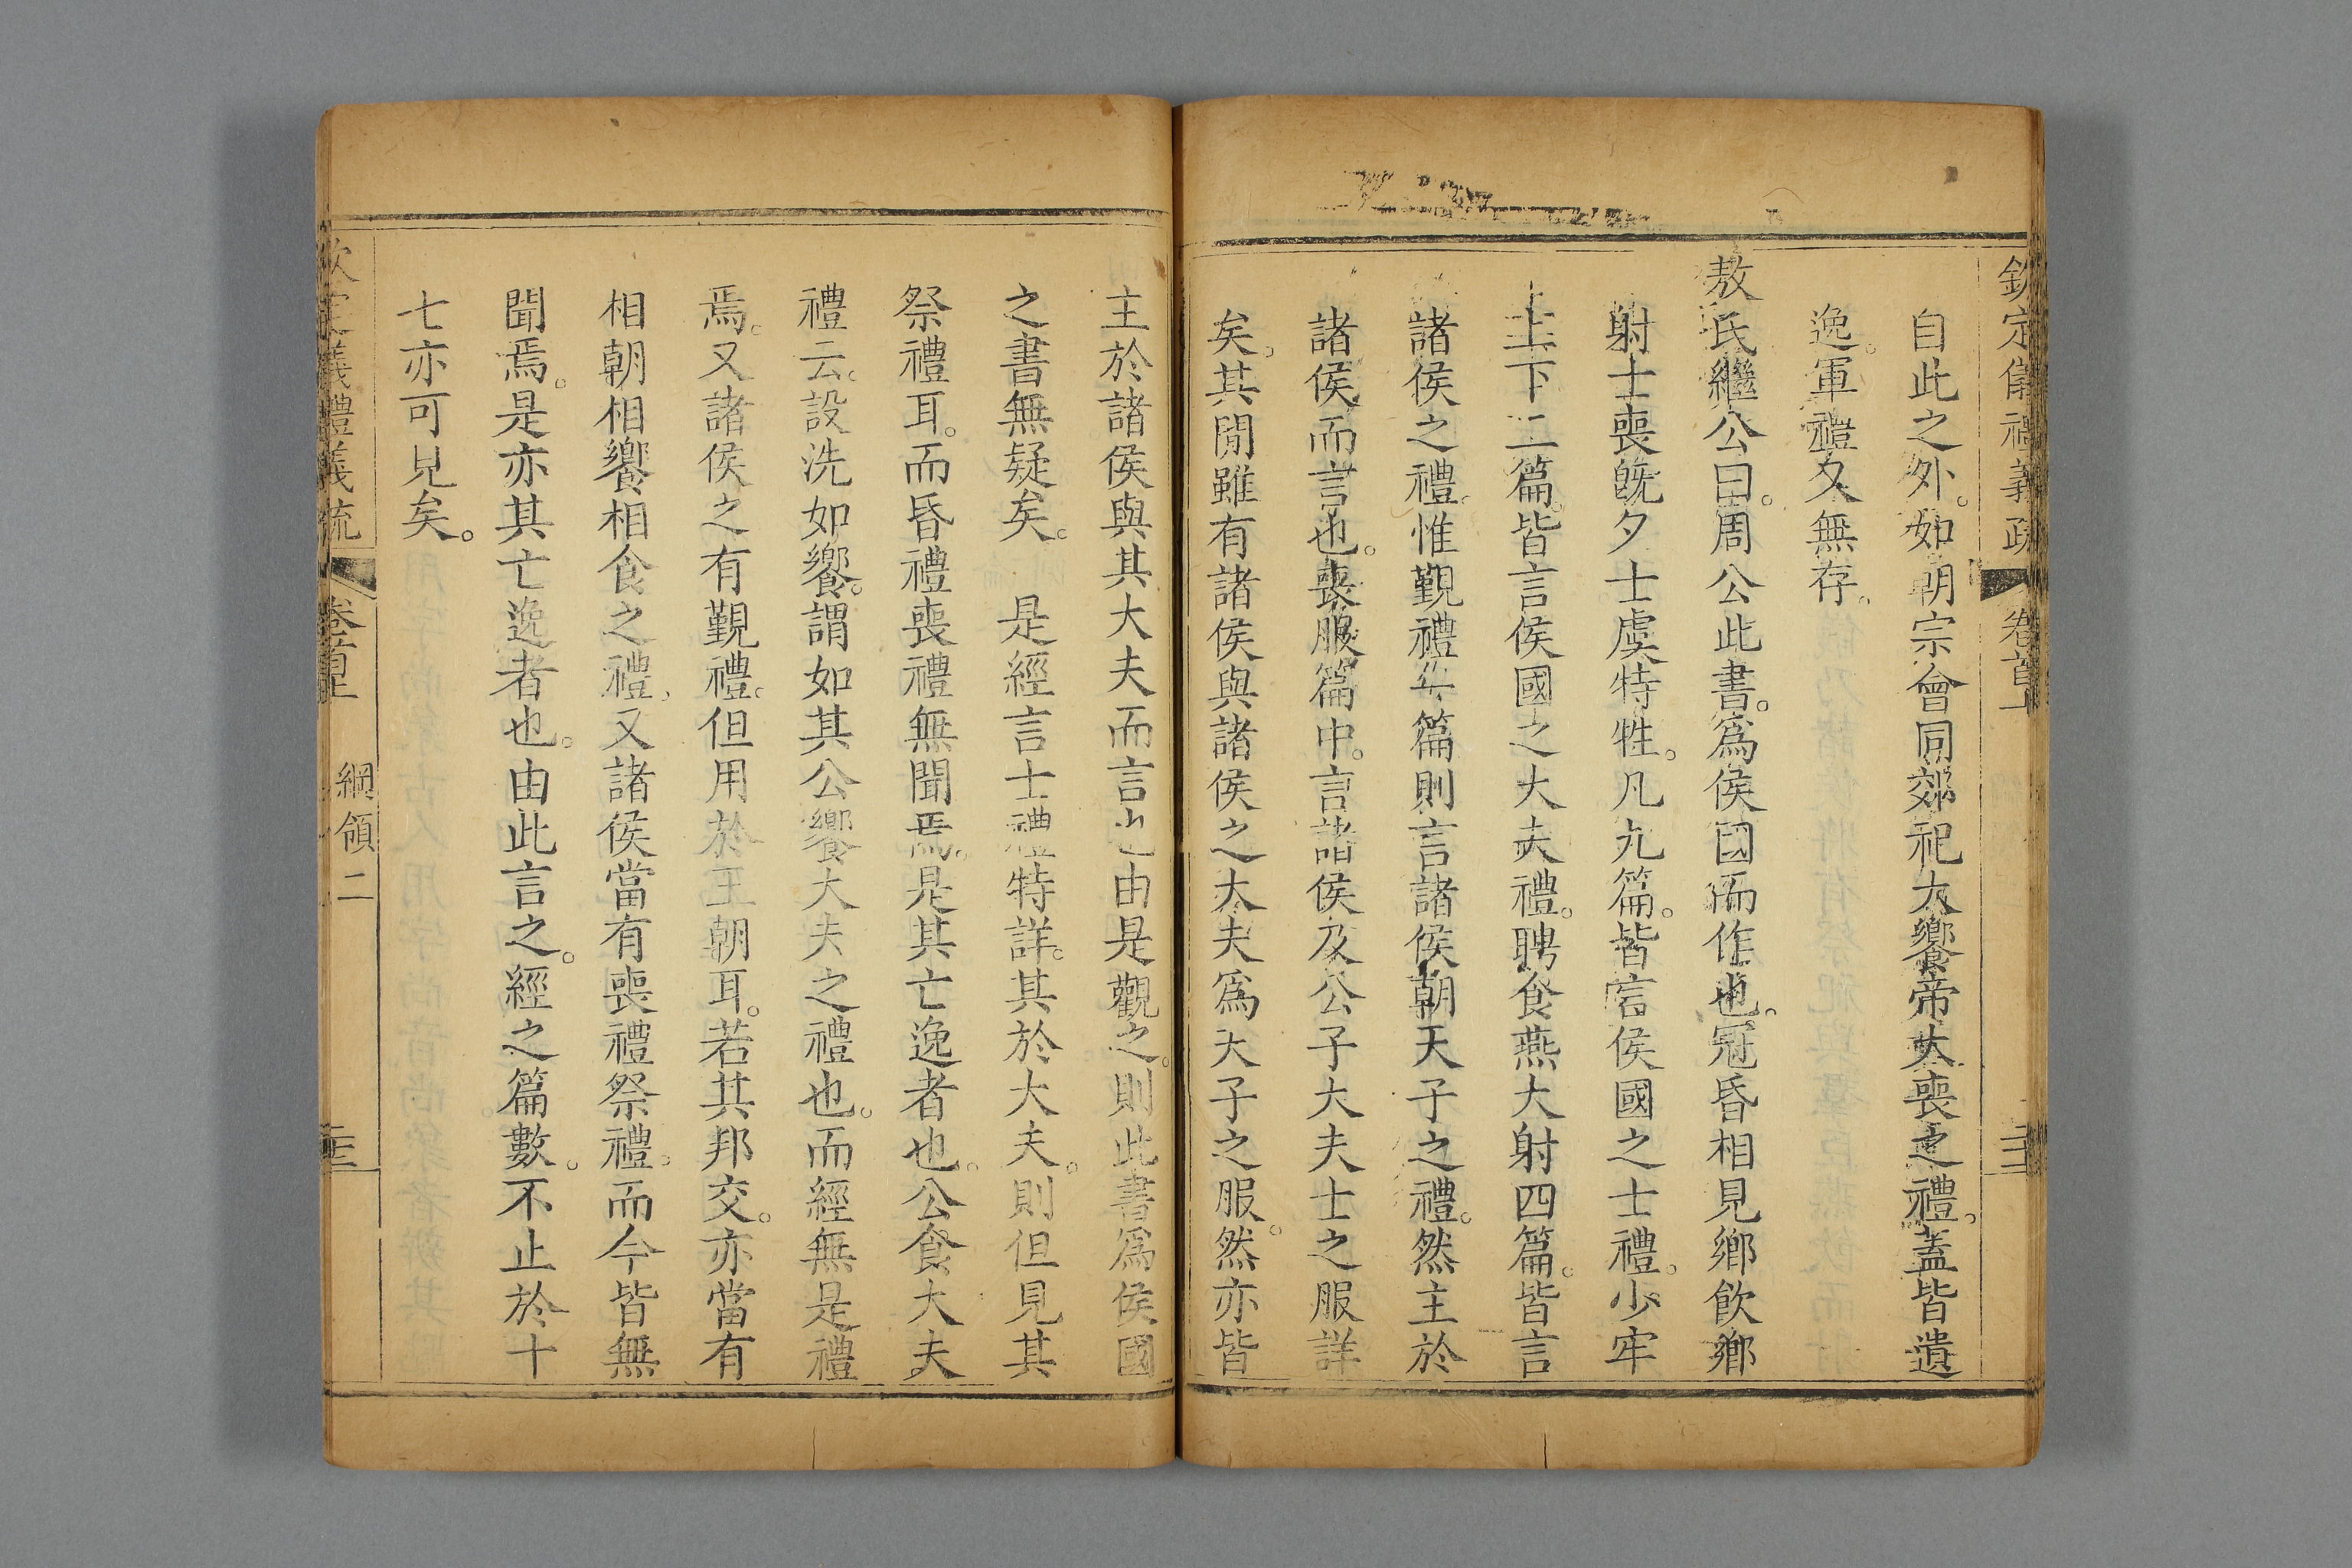 欽定儀禮義疏 卷首上
自此之外。如朝宗會同郊祀大饗帝大喪之禮。蓋皆遺
逸。軍禮久無存。
敖氏繼公曰。周公此書。爲侯國而作也。冠昏相見鄉飮鄉
射士喪旣夕士虞特牲。凡九篇。皆言侯國之士禮。少牢
上下二篇。皆言侯國之大夫禮。聘食燕大射四篇。皆言
諸侯之禮。惟覲禮一篇則言諸侯朝天子之禮。然主於
諸侯而言也。喪服篇中。言諸侯及公子大夫士之服詳
矣。其閒雖有諸侯與諸侯之大夫爲天子之服。然亦皆
主於諸侯與其大夫而言也由是觀之。則此書爲侯國
之書無疑矣。 是經言士禮特詳。其於大夫。則但見其
祭禮耳。而昏禮喪禮無聞焉。是其亡逸者也。公食大夫
禮云。設洗如饗。謂如其公饗大夫之禮也。而經無是禮
焉。又諸侯之有覲禮。但用於王朝耳。若其邦交。亦當有
相朝相饗相食之禮。又諸侯當有喪禮祭禮。而今皆無
聞焉。是亦其亡逸者也。由此言之。經之篇數。不止於十
七亦可見矣。
欽定儀禮義疏 卷首上 綱領二